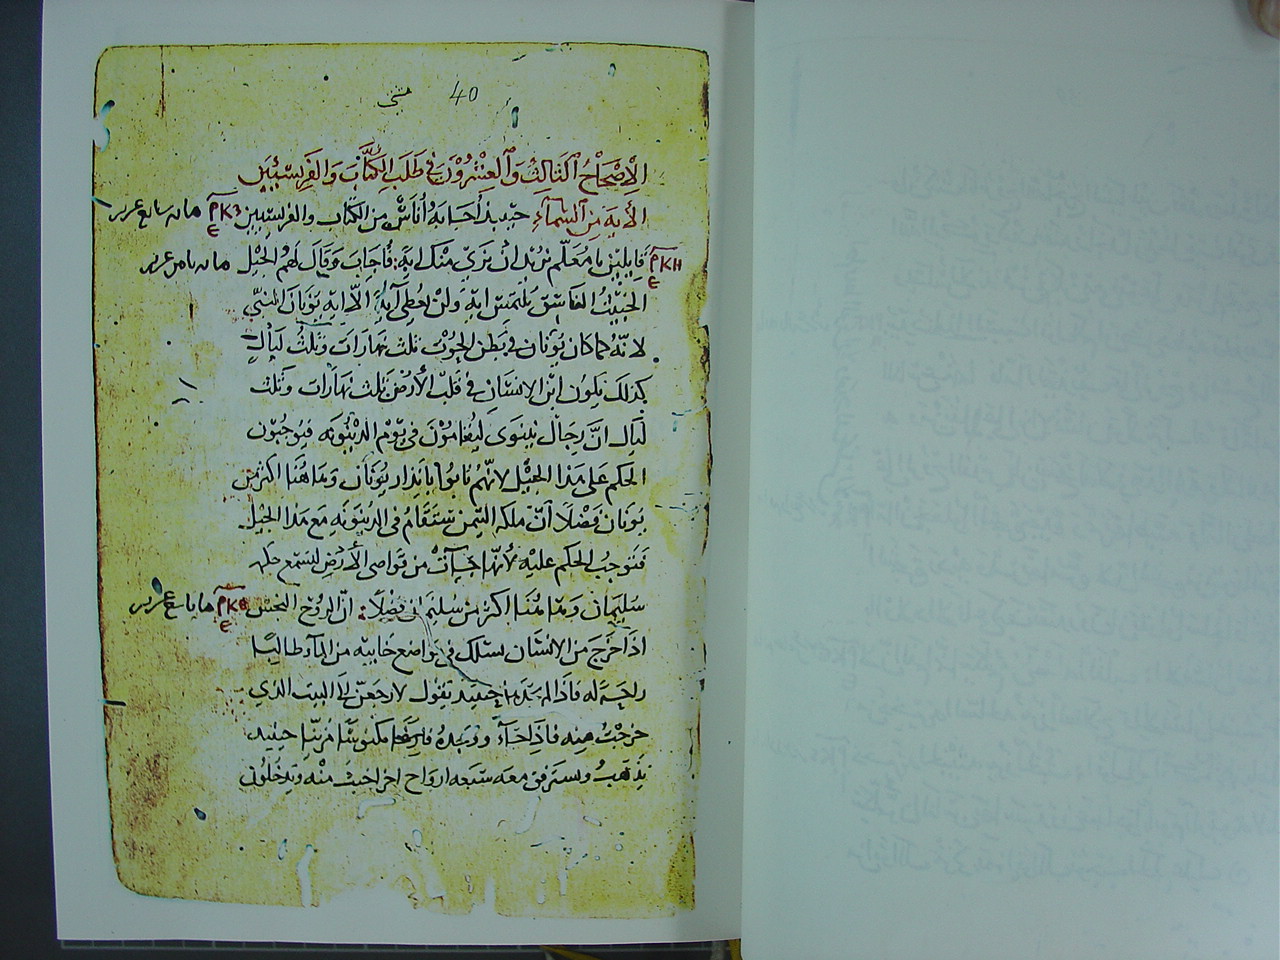 متى 40
الاِصْحَاحُ الثَالِثُ وَالعِشْرُوْنَ فِي طَلَبِ الكُتَّابِ وَالفَرِيسِيِّينَ
الأيَه مِنَ السَمآءِ حينيذ أجابهُ أناسٌ من الكتاب والفريسيين ماىه سابع
قايلين يا معلّم نريد ان نرى منك ايةً فأجابَ وقالَ لهم الجيل ماىه ثامن
الخبيث الفاسق يلتمس ايه ولن يعطى آيةً الاّ ايه يونان النبي
لانّه كما كان يونان في بطن الحوت ثلث نهارات وثلث ليالٍ
كذلك يكون ابن الانسان في قلب الأرض ثلث نهارات وثلث
ليال انّ رجال نينوى ليقامون في يوم الدينونه فيوجبون
الحكم على هذا الجيل لانّهم تابوا بانذار يونان وهاهنا اكثر من
يونان فضلًا انّ ملكه التيمن ستقام في الدينونه مع هذا الجيل
فتوجب الحكم عليه لأنّها جآت من قواصى الأرض لتسمع حكمه
سليمان وهاهنا اكثر من سليمان فضلًا انّ الروح النجس
اذا خرج من الانسان سلك في مواضع خاييه من المآء طالبًا
راحة له فاذا لم يجدها حينيذ يقول لارجعنّ الى البيت الذي
خرجت منه فاذا جآء ووجده فارغًا مكنوسًا مزينًا حينيذ
يذهب ويسترفق معه سبعه ارواح اخر اخبث منه ويدخلون